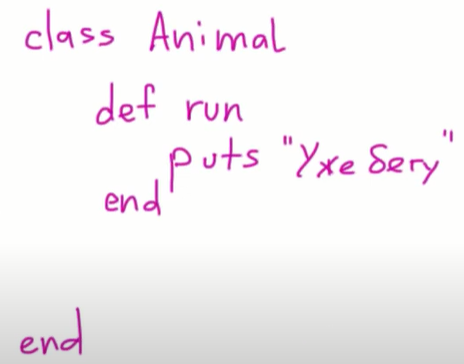 class Animal
def run
puts "Уже бегу"
end
end